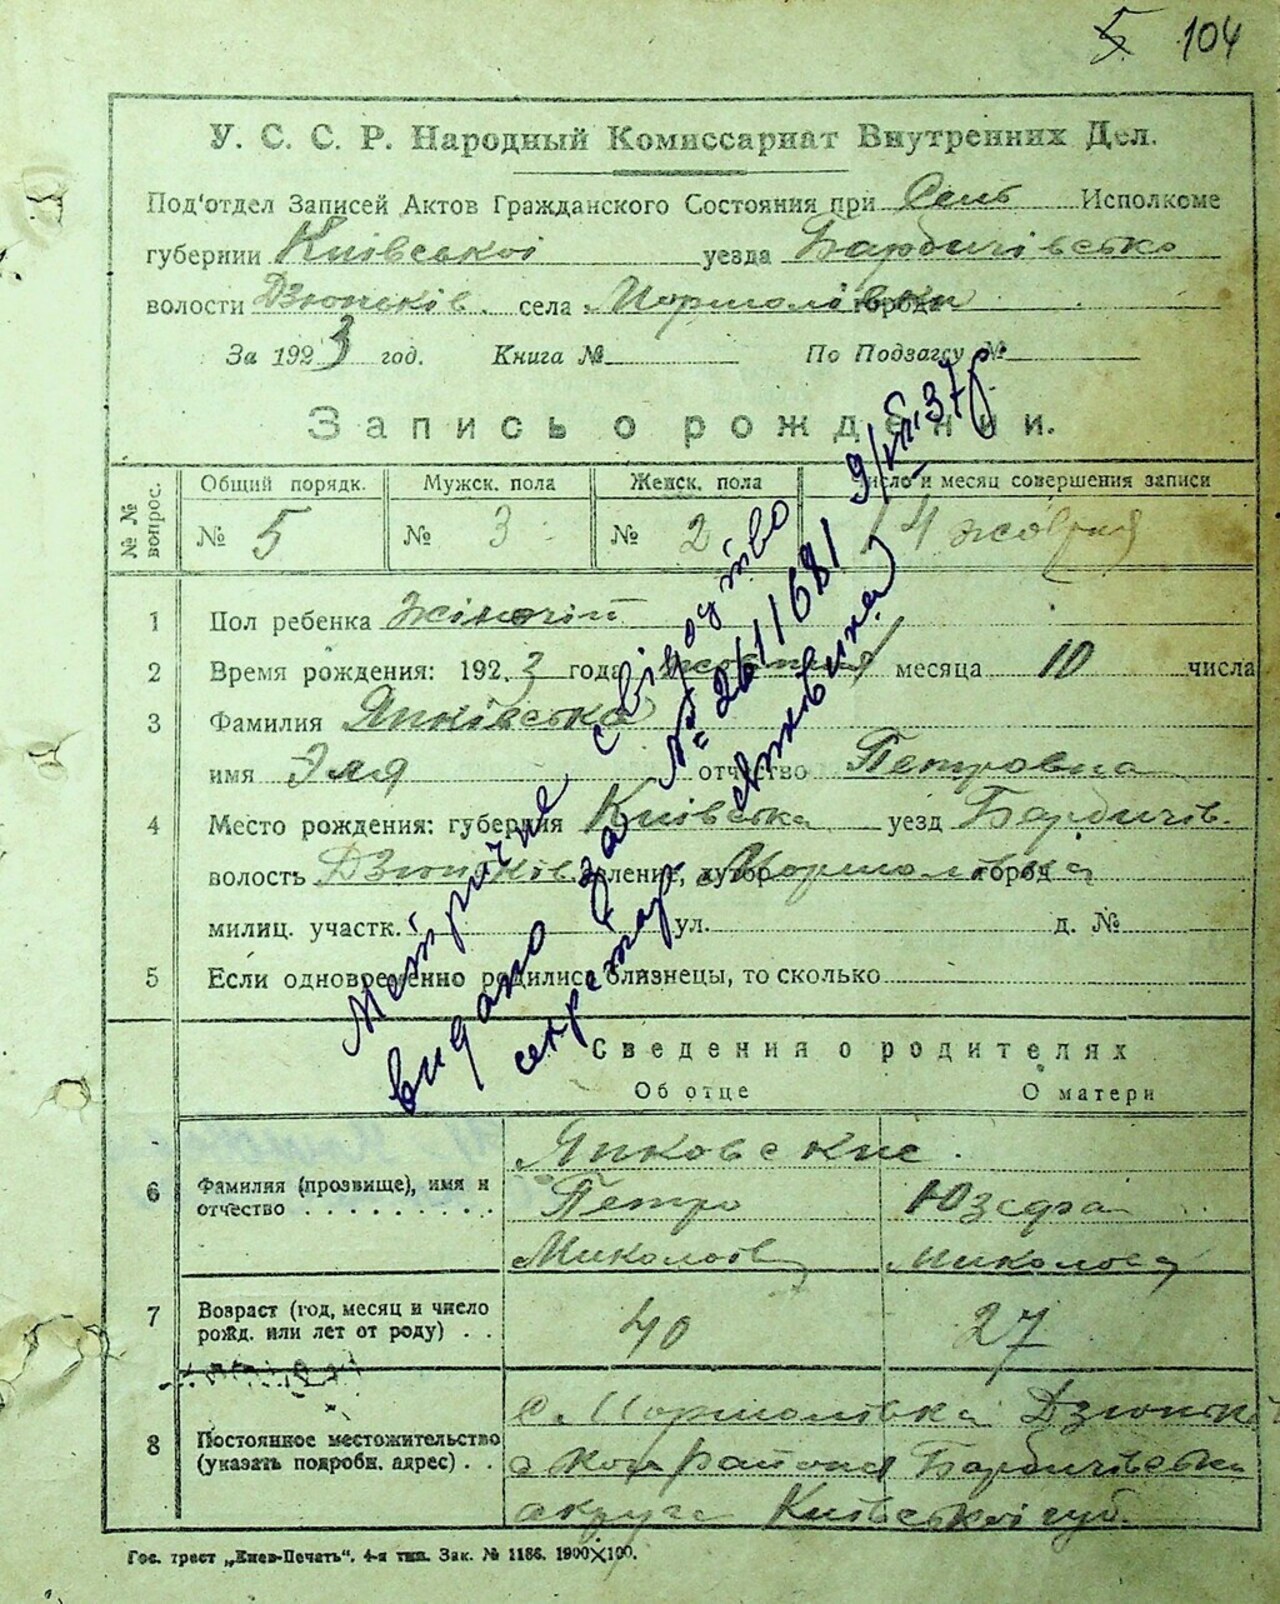 5 104
У. С. С. Р. Народный Комиссариат Внутренних Дел.
Под'отдел Записей Актов Гражданского Состояния при Сель Исполкоме
губернии Київської уезда Бардичівсько
волости Дзюньків села Мормолівки города
За 1923 год. Книга № По Подзагсу №
Запись о рождении.
№№ вопрос. Общий порядк. Мужск. пола Женск. пола Число и месяц совершения записи
№ 5 № 3 № 2 14 жовтня
1 Пол ребенка жіночій
2 Время рождения: 1923 года жовтня месяца 10 числа
3 Фамилия Янківська
имя Эля отчество Петровна
4 Место рождения: губерния Київська уезд Бардичів.
волость Дзюньків селение, хутор Мормолівка город
милиц. участк. ул. д. №
5 Если одновременно родились близнецы, то сколько
Метричне свідоцтво
видано за № 2611681 9/VII.37р
секретар
Сведения о родителях
Об отце О матери
Янковские.
6 Фамилия (прозвище), имя и отчество Петро Юзефа
Миколаєв Миколаєв
7 Возраст (год, месяц и число рожд. или лет от роду) 40 27
с. Мормолівка Дзюньк
8 Постоянное местожительство (указать подробн. адрес) района Бардичівська
округа Київської губ.
Гос. трест „Киев-Печать“. 4-я тип. Зак. № 1186. 1900×100.